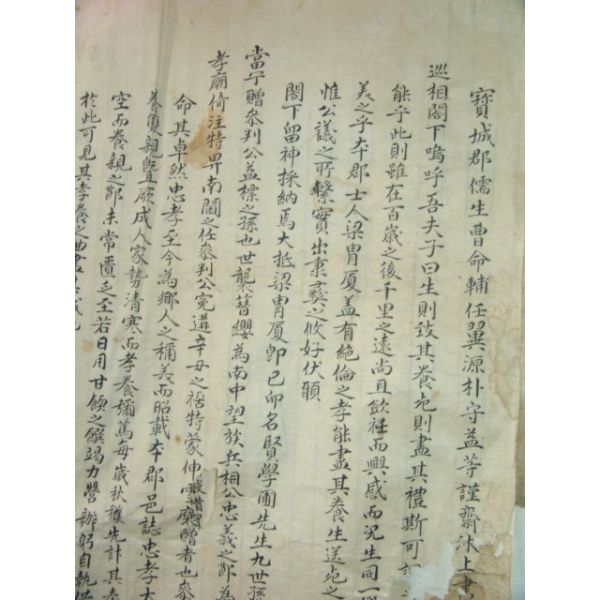 寶城郡儒生曺命輔任翼源朴守益等謹齋沐上書
巡相閤下嗚呼吾夫子曰生則致其養死則盡其禮斯可
能乎此則雖在百歲之後千里之遠尚且歛衽而興感而況生同一
美之乎本郡士人梁胄厦盖有絶倫之孝能盡其養生送死之
惟公議之所繫實出秉彛之攸好伏願
閤下留神採納焉大抵梁胄厦卽己卯名賢學圃先生九世孫
當宁贈參判公益標之孫也世襲簪纓爲南中望族兵相公忠義之節爲
孝廟倚注特畀南閫之任參判公寃遘辛丑之禍特蒙伸
命其卓然忠孝至今爲鄉人之稱美而昭載本郡邑誌忠孝
養雙親曁厥成人家勢清寒而孝養彌篤每歲秋穫先計其
空而養親之節未常匱乏至若日用甘餕之饌竭力營辦躬自執
於此可見其孝養之